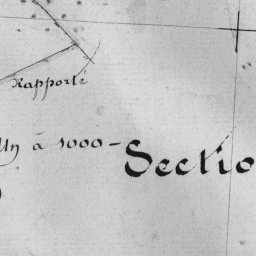 Rapporté
Un à 1000 -
Sectio